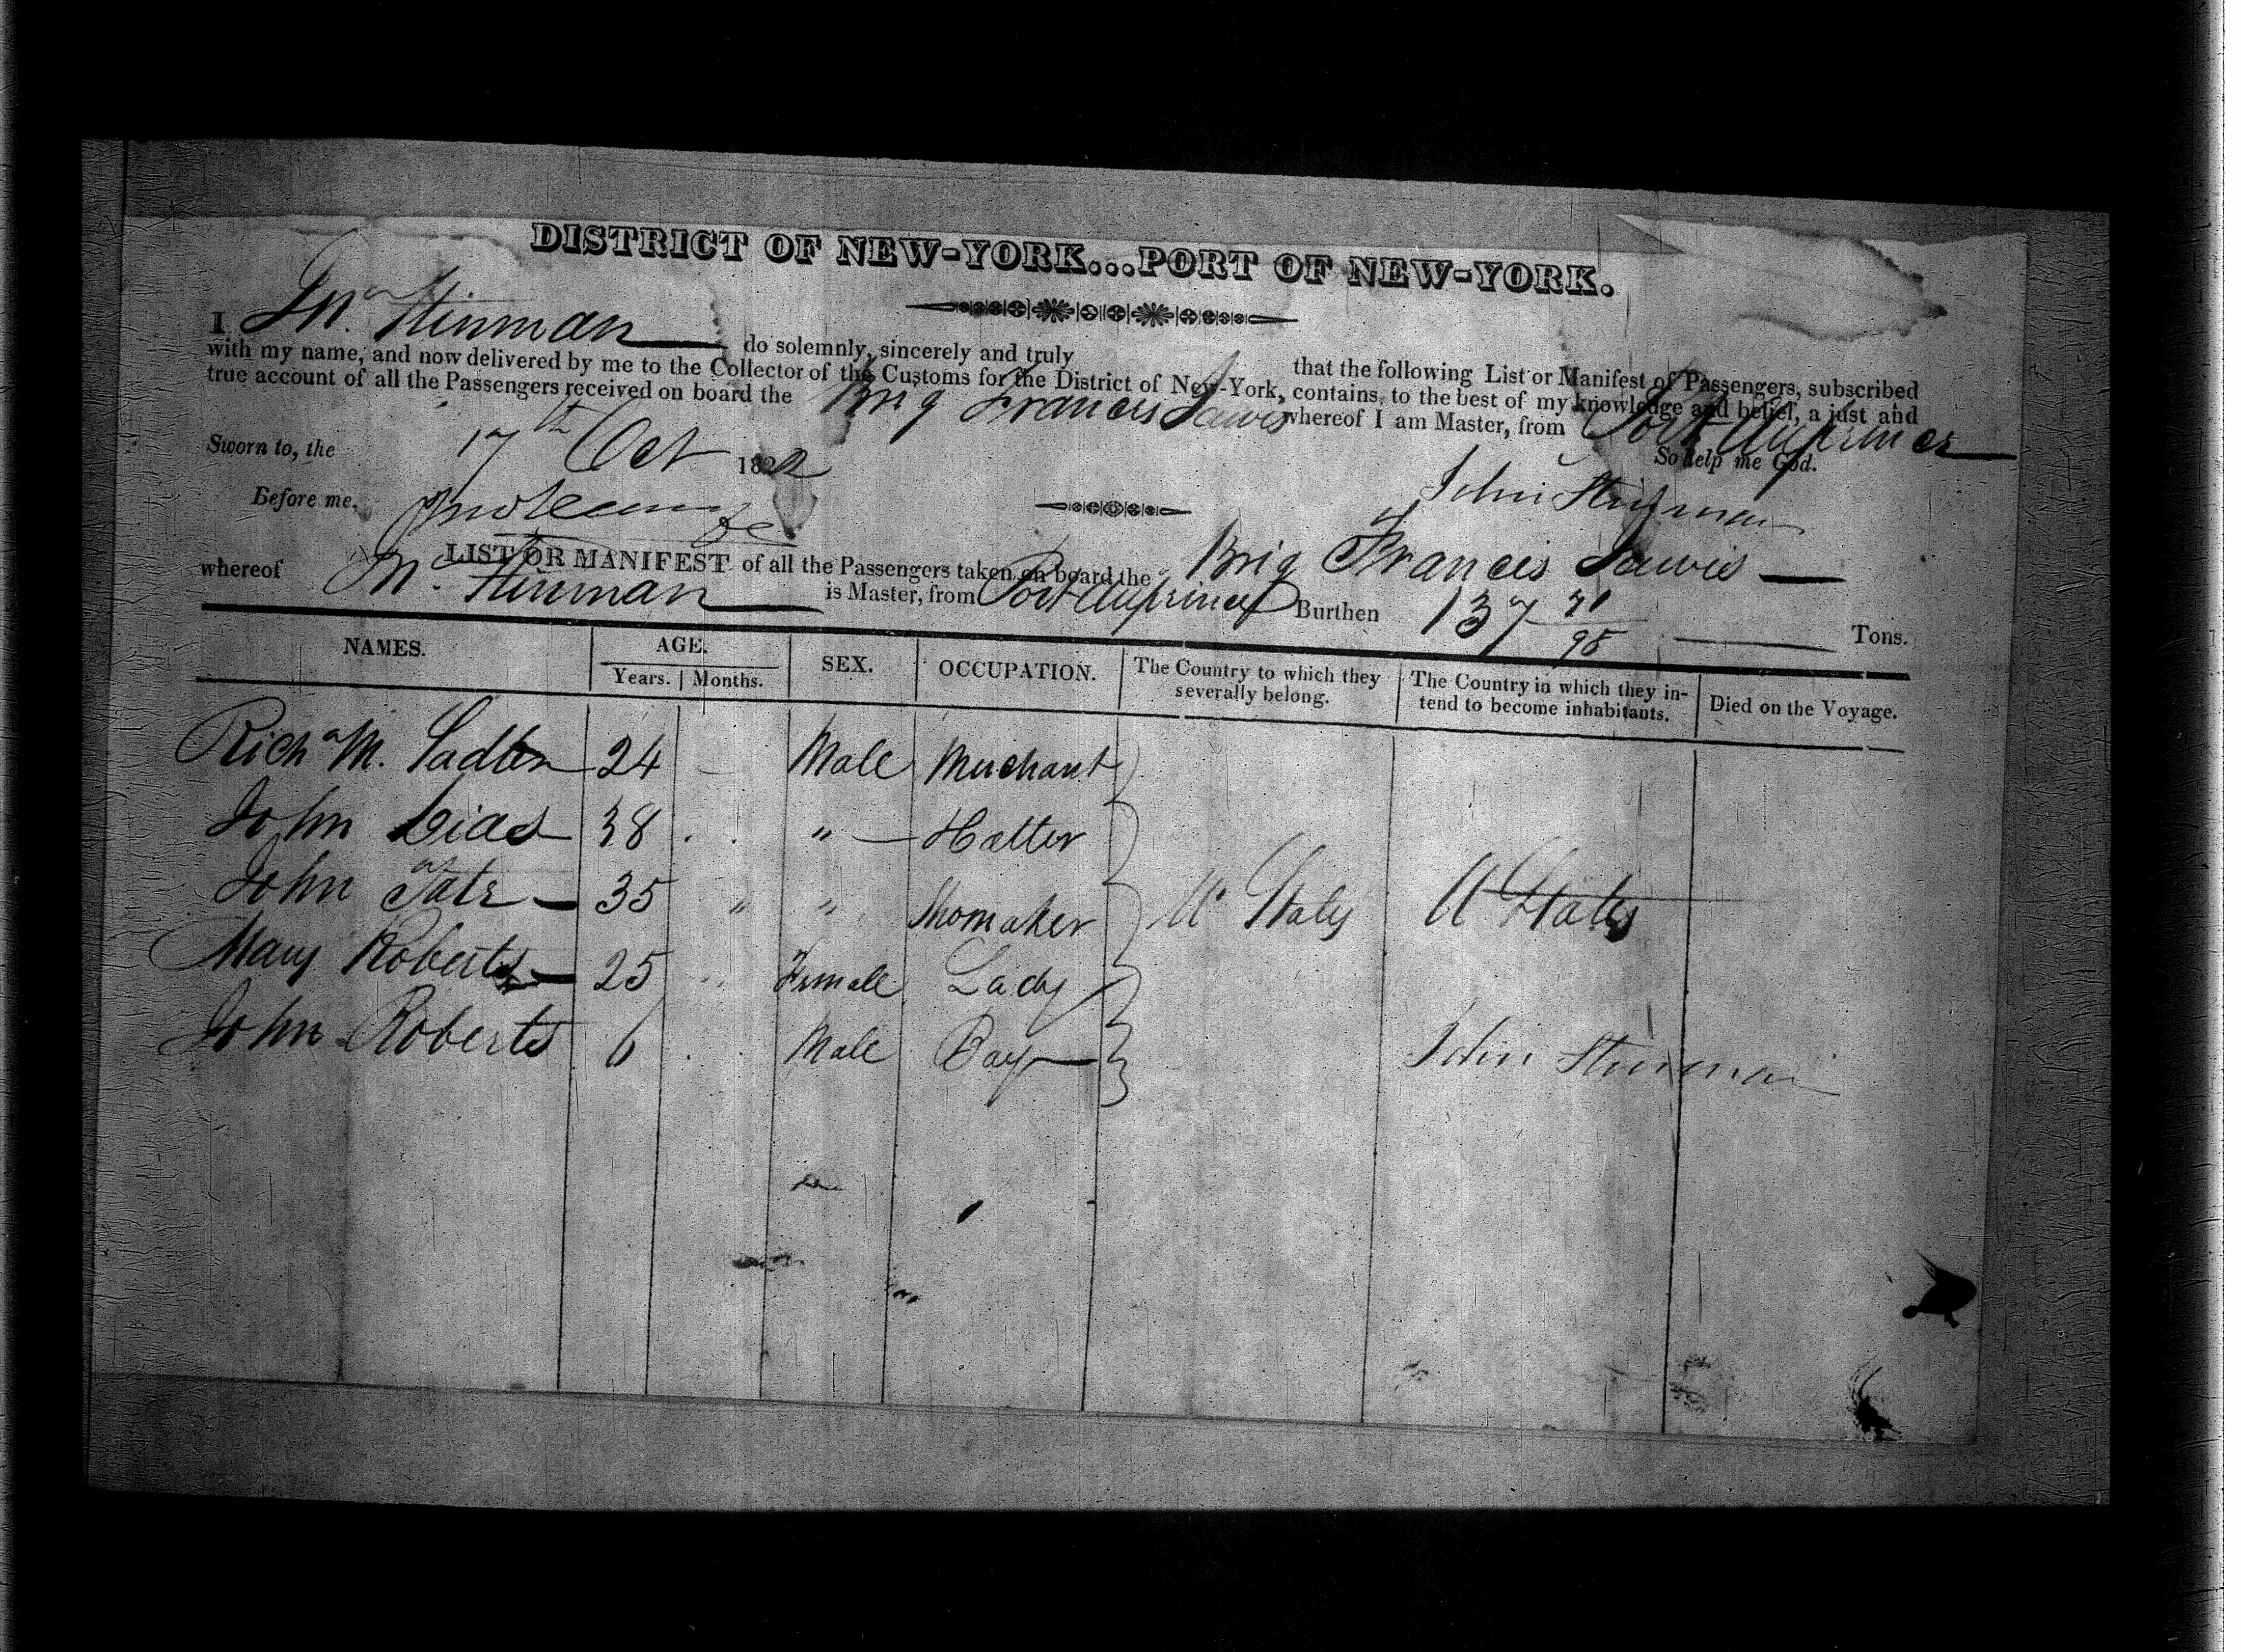 DISTRICT OF NEW-YORK...PORT OF NEW-YORK.
I Jno. Hinman do solemnly, sincerely and truly that the following List or Manifest of Passengers, subscribed
with my name, and now delivered by me to the Collector of the Customs for the District of New-York, contains, to the best of my knowledge and belief, a just and
true account of all the Passengers received on board the Brig Francis whereof I am Master, from Port Auprince
So help me God.
Sworn to, the 17th Oct 1822
John Hinman
Before me,
LIST OR MANIFEST of all the Passengers taken on board the Brig Francis
whereof Hinman is Master, from Port Auprince Burthen 137 71/95 Tons.
NAMES. AGE. Years. Months. SEX. OCCUPATION. The Country to which they severally belong. The Country in which they intend to become inhabitants. Died on the Voyage.
Richd M. 24 Male Merchant
John 38 " Hatter
John Tate 35 " " Shomaker U States U States
Mary Roberts 25 Female Lady
John Roberts 6 Male Boy
John Hinman